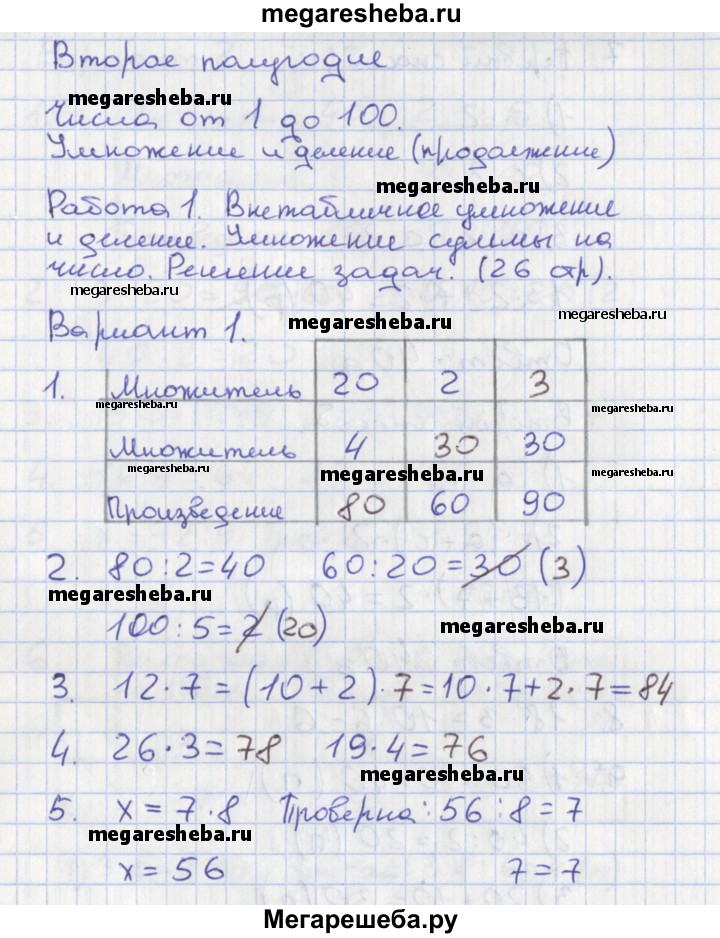 megaresheba.ru
Второе полугодие
megaresheba.ru
Числа от 1 до 100.
Умножение и деление (продолжение)
megaresheba.ru
Работа 1. Внетабличное умножение
и деление. Умножение суммы на
число. Решение задач. (26 стр).
megaresheba.ru
megaresheba.ru
megaresheba.ru
Вариант 1.
1. Множитель 20 2 3
megaresheba.ru
megaresheba.ru
Множитель 4 30 30
megaresheba.ru
megaresheba.ru
megaresheba.ru
Произведение 80 60 90
2. 80:2=40 60:20=30 (3)
megaresheba.ru
100:5=2 (20)
megaresheba.ru
3. 12·7=(10+2)·7=10·7+2·7=84
4. 26·3=78 19·4=76
megaresheba.ru
5. x=7·8 Проверка:56:8=7
megaresheba.ru
x=56 7=7
Мегарешеба.ру